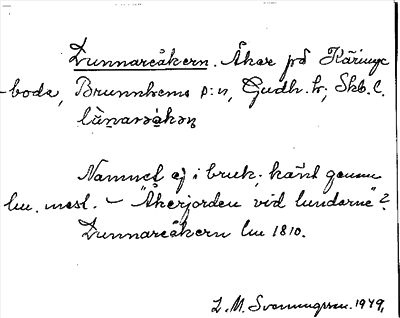 Lunnareåkern. Åker på Käringe
-boda, Brunnhems s:n, Gudh. h; Skb. l.
Namnet ej i bruk; känt genom
lm. mtsl. – "Åkerjorden vid lundarne"?
Lunnareåkern lm 1810.
L. M. Svenungsson. 1949.